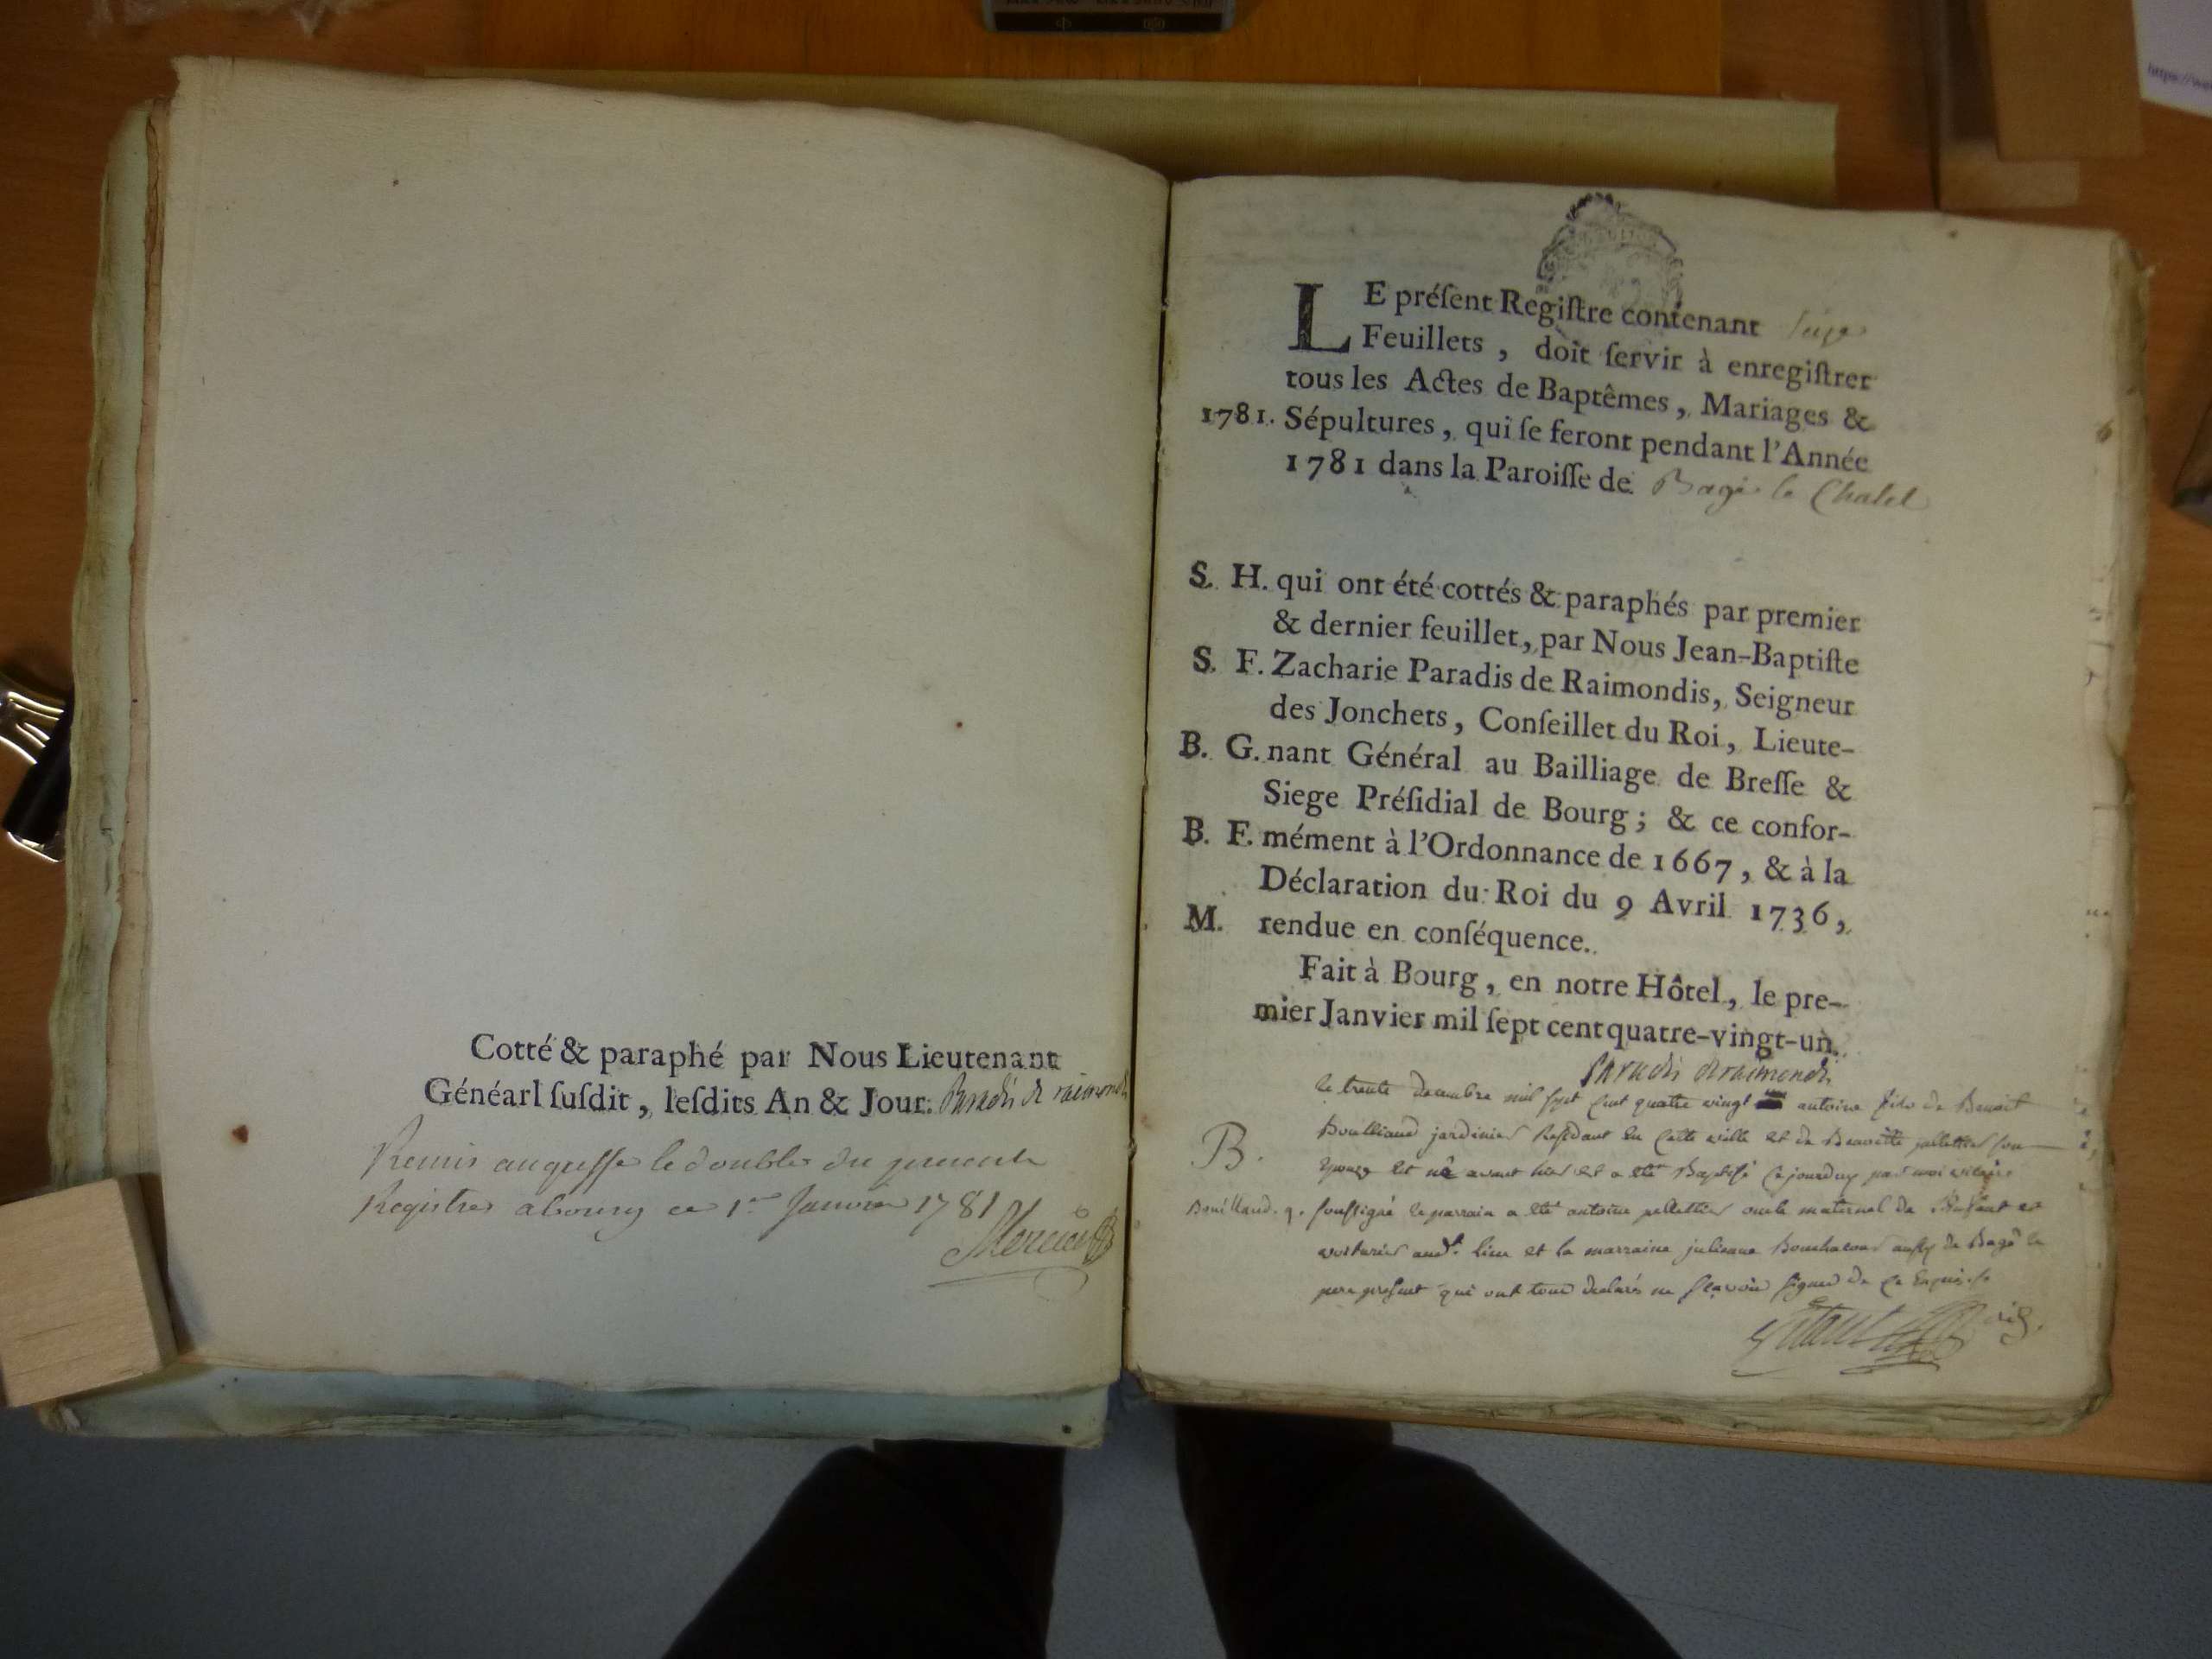 Cotté & paraphé par Nous Lieutenant
Généarl ſuſdit, leſdits An & Jour. Paradis de raimondis
Remis au greffe le double du present
Registre a bourg ce 1er Janvier 1781
LE préſent Regiſtre contenant
Feuillets, doit ſervir à enregiſtrer
tous les Actes de Baptêmes, Mariages &
1781. Sépultures, qui ſe feront pendant l'Année
1781 dans la Paroiſſe de Bagé le Chatel
S. H. qui ont été cottés & paraphés par premier
& dernier feuillet, par Nous Jean-Baptiſte
S. F. Zacharie Paradis de Raimondis, Seigneur
des Jonchets, Conſeiller du Roi, Lieute-
B. G. nant Général au Bailliage de Breſſe &
Siege Préſidial de Bourg; & ce confor-
B. F. mément à l'Ordonnance de 1667, & à la
Déclaration du Roi du 9 Avril 1736,
M. rendue en conſéquence.
Fait à Bourg, en notre Hôtel, le pre-
mier Janvier mil ſept cent quatre-vingt-un.
Paradis de raimondis
le trente decembre mil sept cent quatre vingt antoine fils de Benoit
Bouilliand jardinier Residant en cette ville et de Benoitte pellettier son
B. epouse est né avant hier et a eté Baptisé ce jourduy par moi vicaire
Bouilland. g. soussigné le parrain a eté antoine pellettier oncle maternel de l'Enfant et
voiturier audt. lieu et la marraine julienne aussy de Bagé le
pere present qui ont tous declarés ne sçavoir signer de ce Enquis
vic.